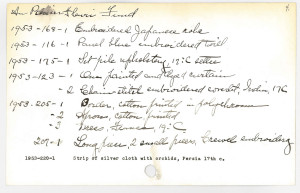 Fund
1953-168-1 Embroidered Japanese robe
1953-116-1 Panel blue embroidered twill
1953-175-1 Cut pile upholstery, 19°C
1953-123-1 One printed and dyed curtain
-2 Chain stitch embroidered coverlet, India, 17°C
1953-205-1 Border, cotton printed in polychrome
-2 Apron, cotton printed
-3 19°C
207-1 Long piece, 2 small pieces, Crewel embroidery
1953-220-1 Strip of silver cloth with orchids, Persia 17th c.